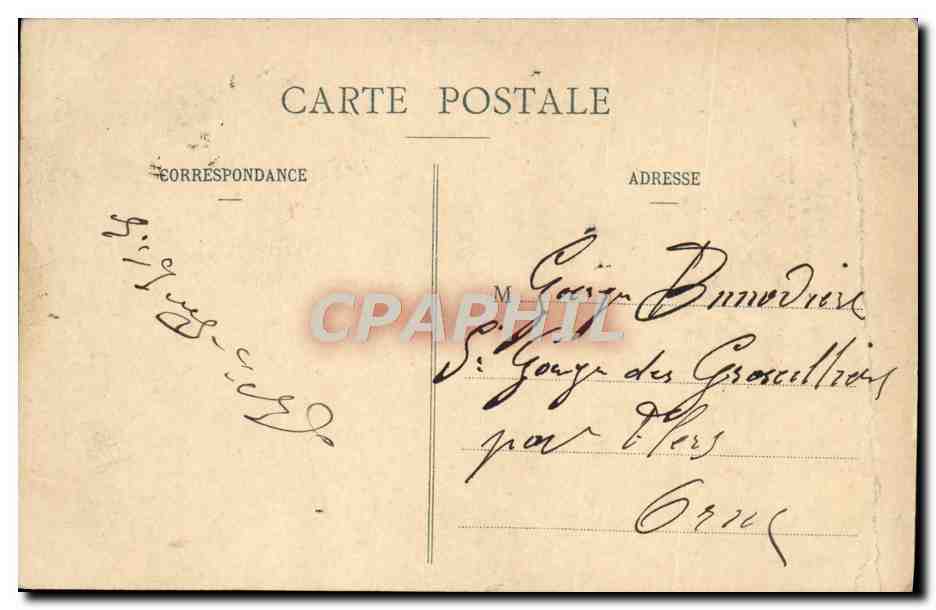 CARTE POSTALE
CORRESPONDANCE
ADRESSE
M Georges
CPAPHIL
St George des Groseillers
par Flers
Orne